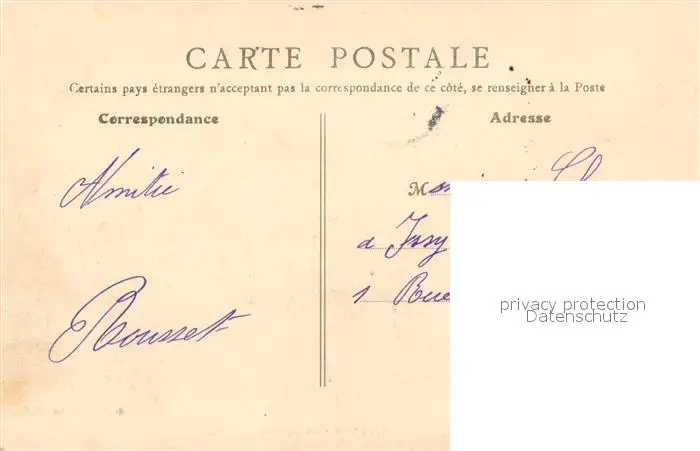 CARTE POSTALE
Certains pays étrangers n'acceptant pas la correspondance de ce côté, se renseigner à la Poste
Correspondance
Adresse
Amitié
Rousset
M
a Issy
1 Rue
privacy protection
Datenschutz